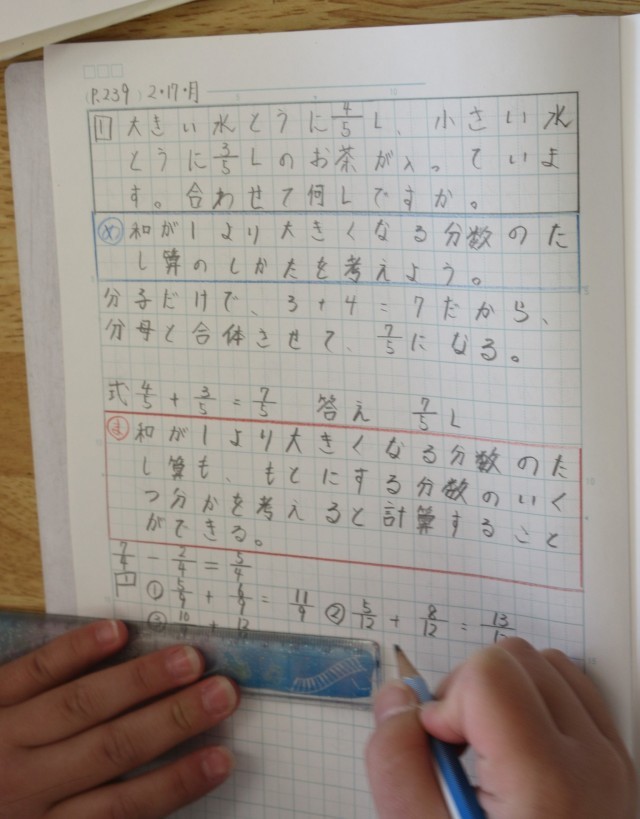 (P.239) 2・17・月
1 大きい水とうに4/5L、小さい水
とうに3/5Lのお茶が入っていま
す。合わせて何Lですか。
め 和が1より大きくなる分数のた
し算のしかたを考えよう。
分子だけで、3+4=7だから、
分母と合体させて、7/5になる。
式 4/5 + 3/5 = 7/5 答え 7/5 L
ま 和が1より大きくなる分数のた
し算も、もとにする分数のいく
つ分かを考えると計算すること
ができる。
7/4 - 2/4 = 5/4
① 5/9 + 6/9 = 11/9 ② 5/12 + 8/12 = 13/12
③